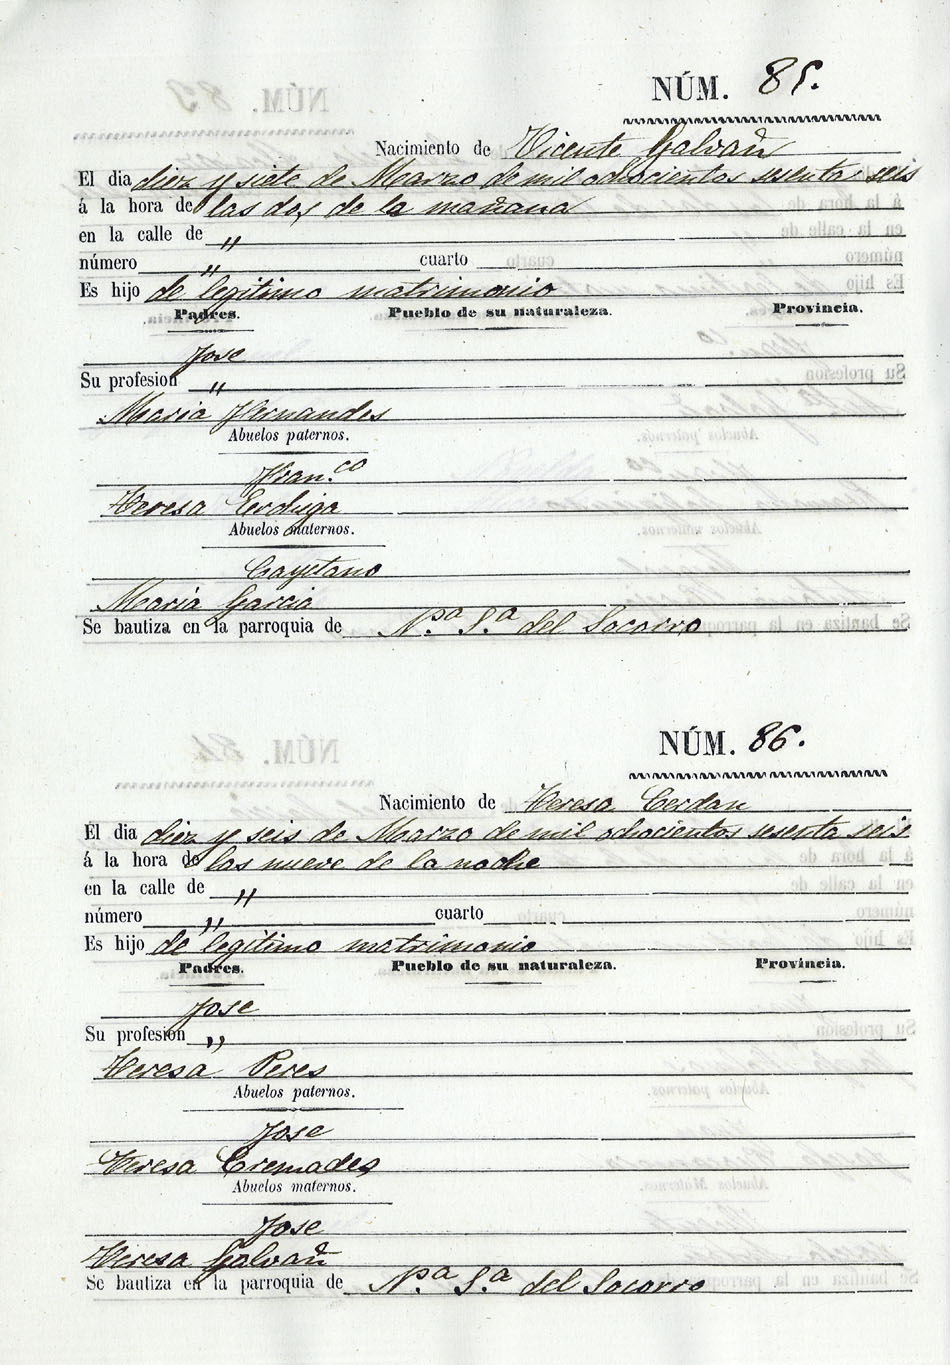 NÚM. 85.
Nacimiento de Vicente Galvañ
El dia diez y siete de Marzo de mil ochocientos sesenta seis
á la hora de las dos de la mañana
en la calle de "
número " cuarto
Es hijo de legitimo matrimonio
Padres. Pueblo de su naturaleza. Provincia.
Jose
Su profesion "
Maria Hernandes
Abuelos paternos.
Fran.co
Teresa
Abuelos maternos.
Cayetano
Maria Garcia
Se bautiza en la parroquia de N.ª S.ª del Socorro
NÚM. 86.
Nacimiento de Teresa Cerdan
El dia diez y seis de Marzo de mil ochocientos sesenta seis
á la hora de las nueve de la noche
en la calle de "
número " cuarto
Es hijo de legitimo matrimonio
Padres. Pueblo de su naturaleza. Provincia.
Jose
Su profesion "
Teresa Peres
Abuelos paternos.
Jose
Teresa Cremades
Abuelos maternos.
Jose
Teresa Galvañ
Se bautiza en la parroquia de N.ª S.ª del Socorro